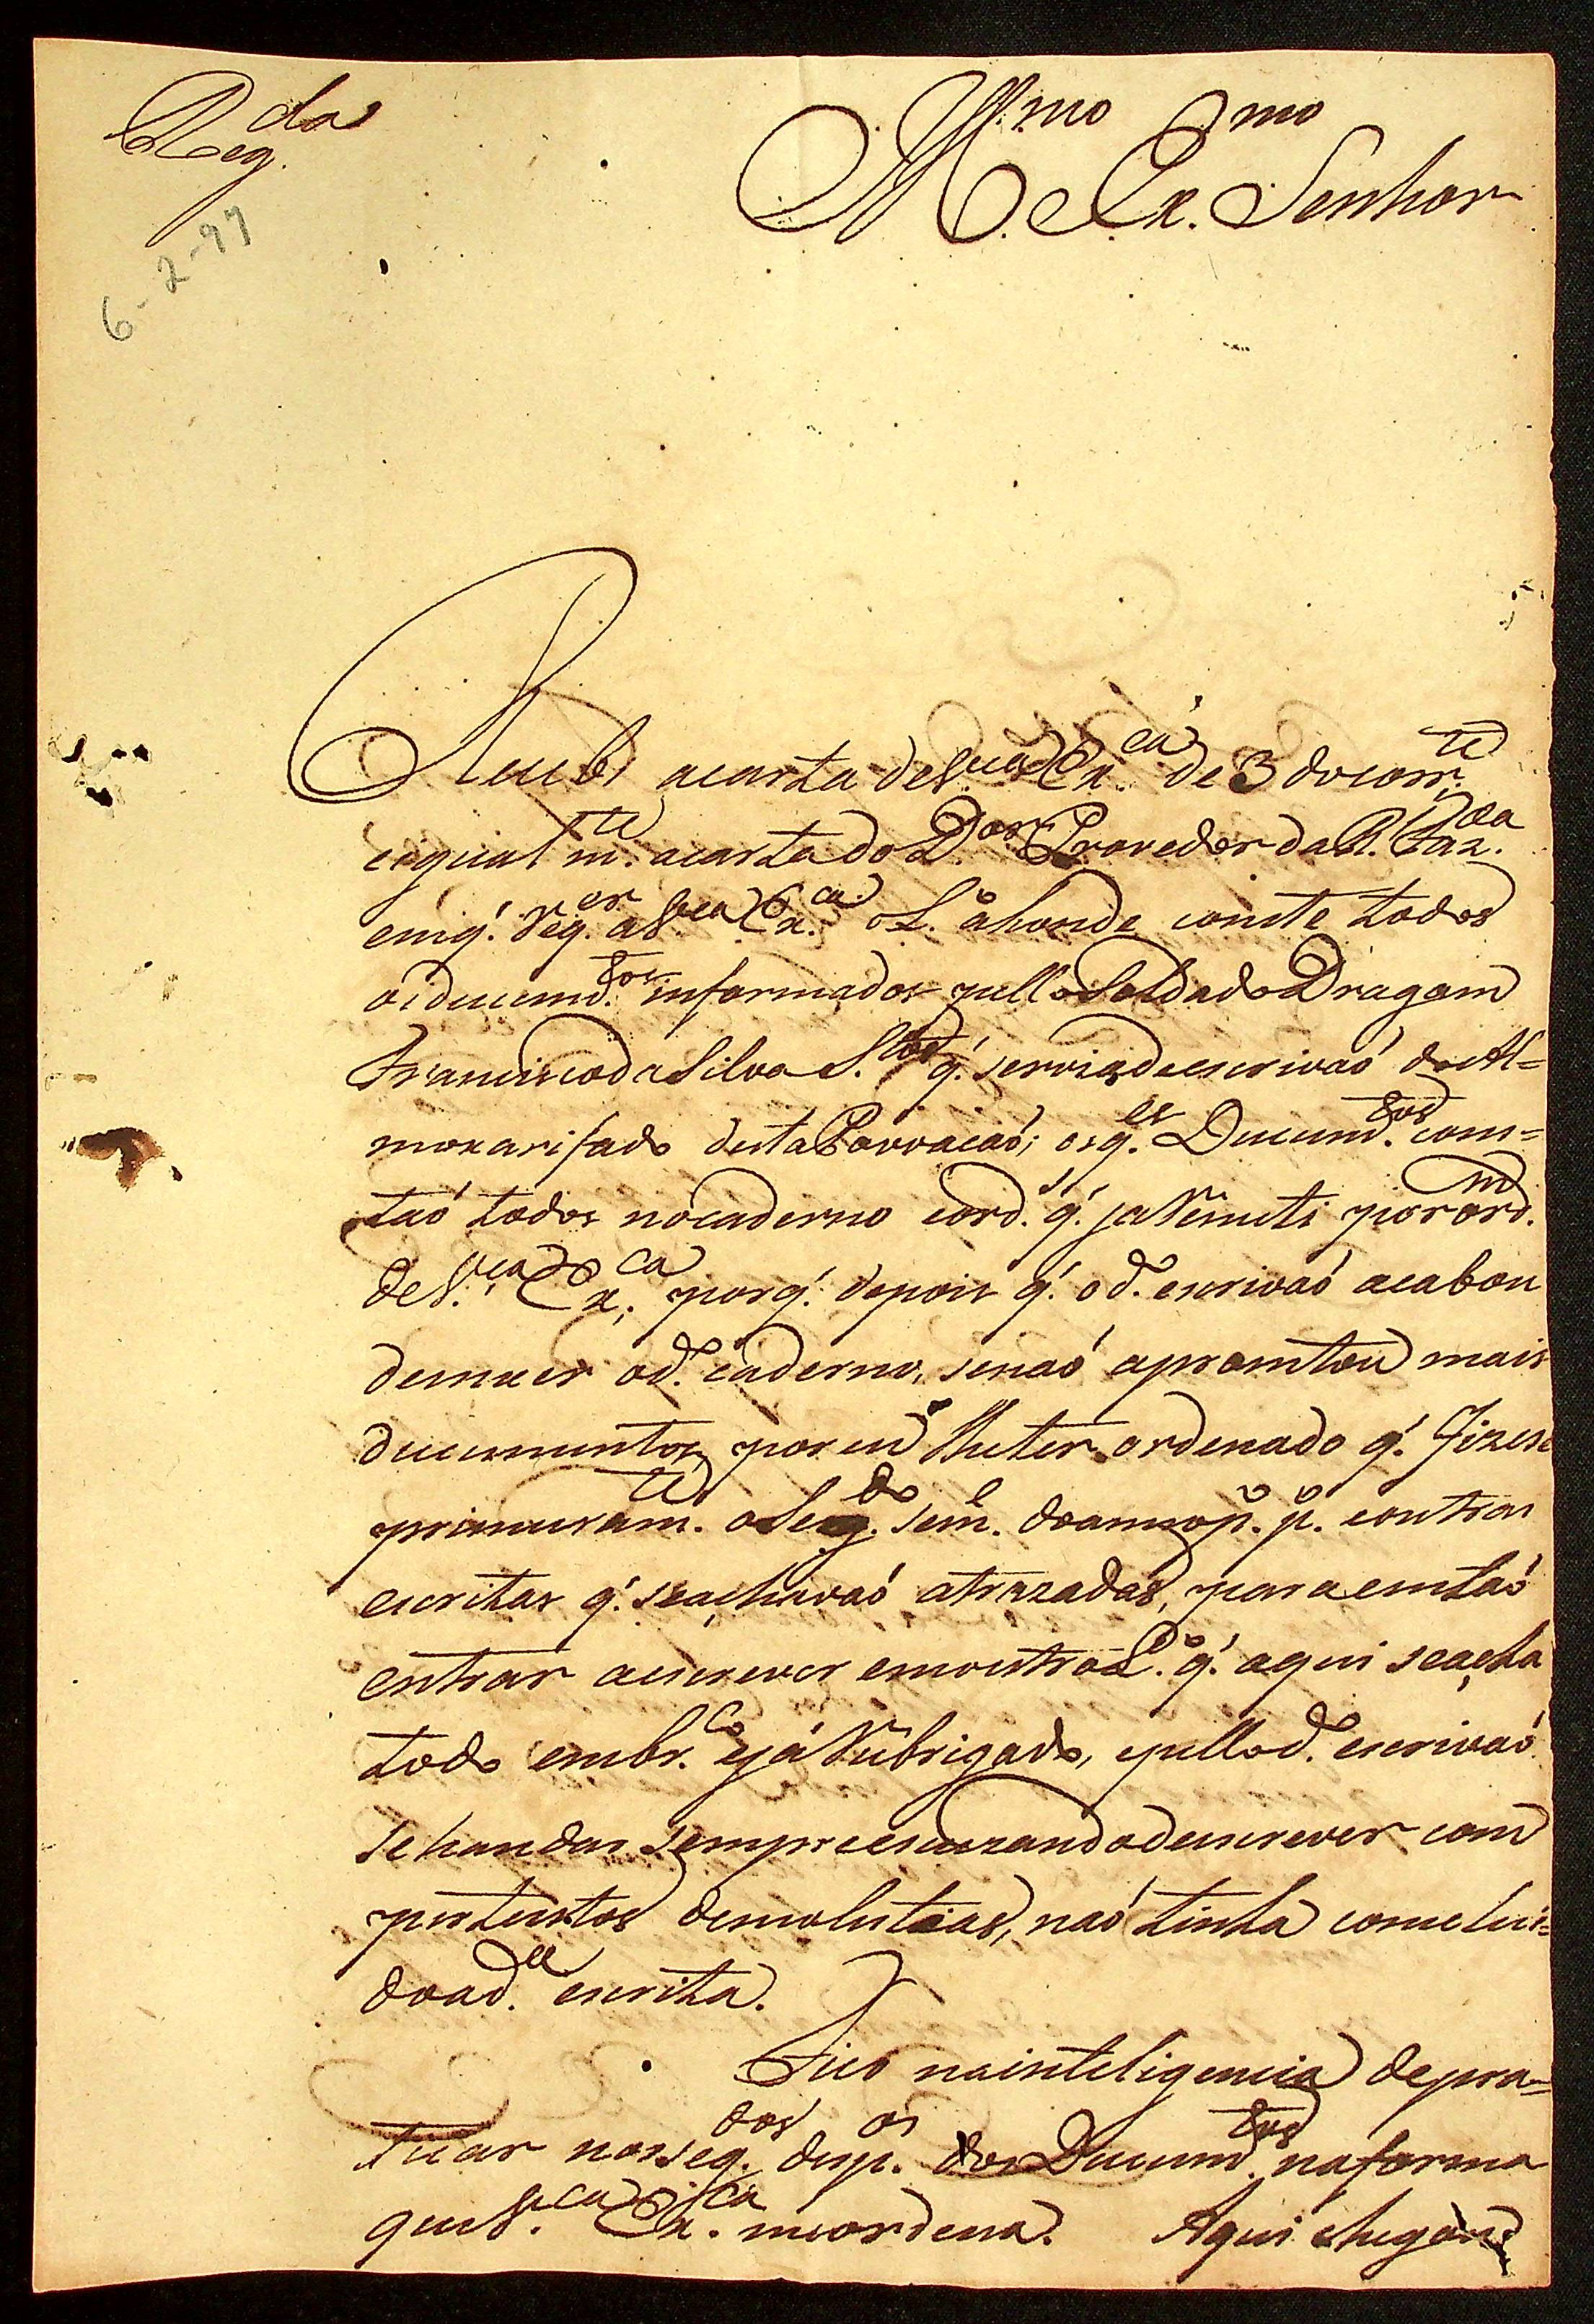 Reg.da
6-2-97
Ill.mo e Ex.mo Senhor
Recebi acarta deS.ua Ex.ca de 3 docorr.te
eigualm.te acartado D.or Provedor daR. Faz.da
emq.' req.er aS.ua Ex.ca oL.o ahonde comste todos
osducumd.tos informados pello Soldado Dragam
Francisco da Silva S.tos q.' servia de escrivaó do Al=
moxarifado desta Povoacaó; os q.es Ducumd.tos com=
taó todos nocaderno cord. q.' ja Remeti por ord.m
deS.ua Ex.ca, porq.' depois q.' od.o escrivaó acabou
defazer od.o caderno, senaó apromtou mais
ducumentos, por eu lheter ordenado q.' fizese
primeiram.te oSeg.do sem.e doanno p.o p.o eoutras
escritas q.' seachavaó atrazadas, para emtaó
entrar aescrever emoutro L.o q.' aqui seacha
todo embr.co ejá Rubrigado, epello d.o escrivaó
se handar sempre escuzando deescrever com
pertestos demolestias, naó tinha comclui=
doad.a escrita.
Fico nainteligencia depra=
ticar nos seg.dos desp.os dos Ducumd.tos naforma
queS.ua Ex.ca meordena. Aqui chegàn?